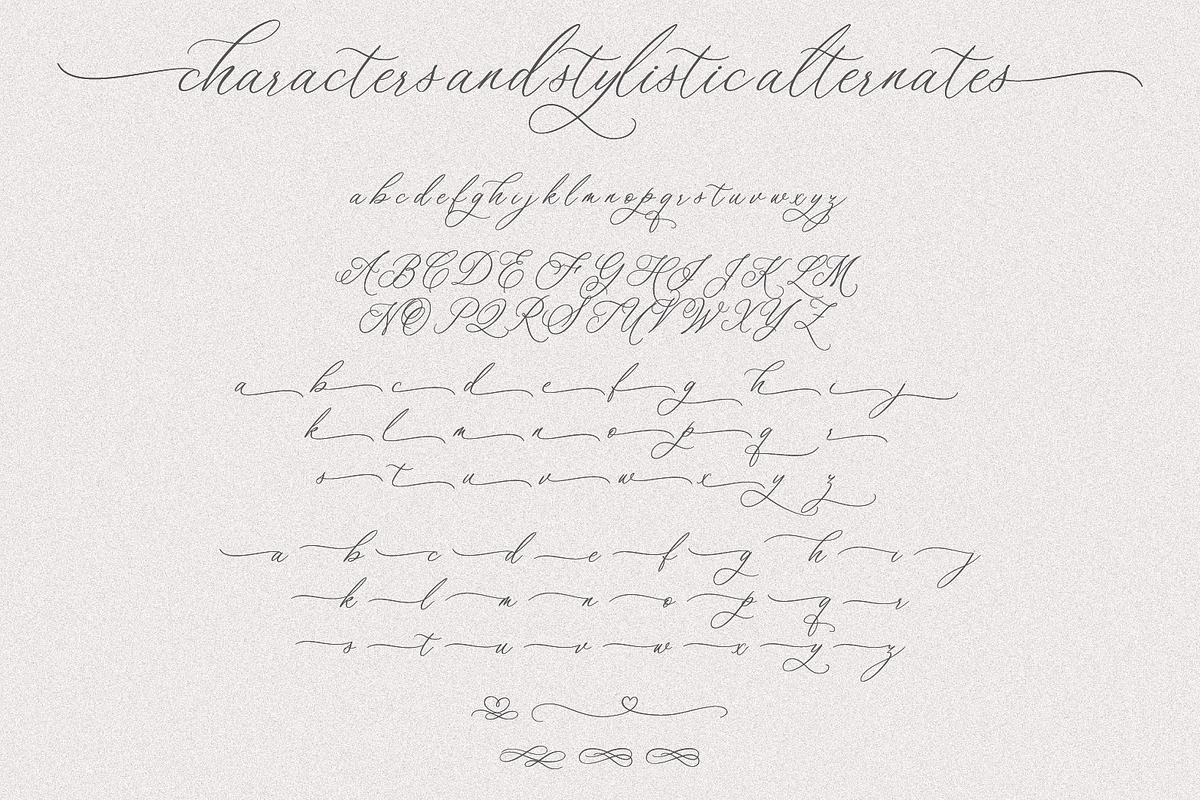 characters and stylistic alternates
a b c d e f g h i j k l m n o p q r s t u v w x y z
A B C D E F G H I J K L M
N O P Q R S T U V W X Y Z
a b c d e f g h i j
k l m n o p q r
s t u v w x y z
a b c d e f g h i j
k l m n o p q r
s t u v w x y z